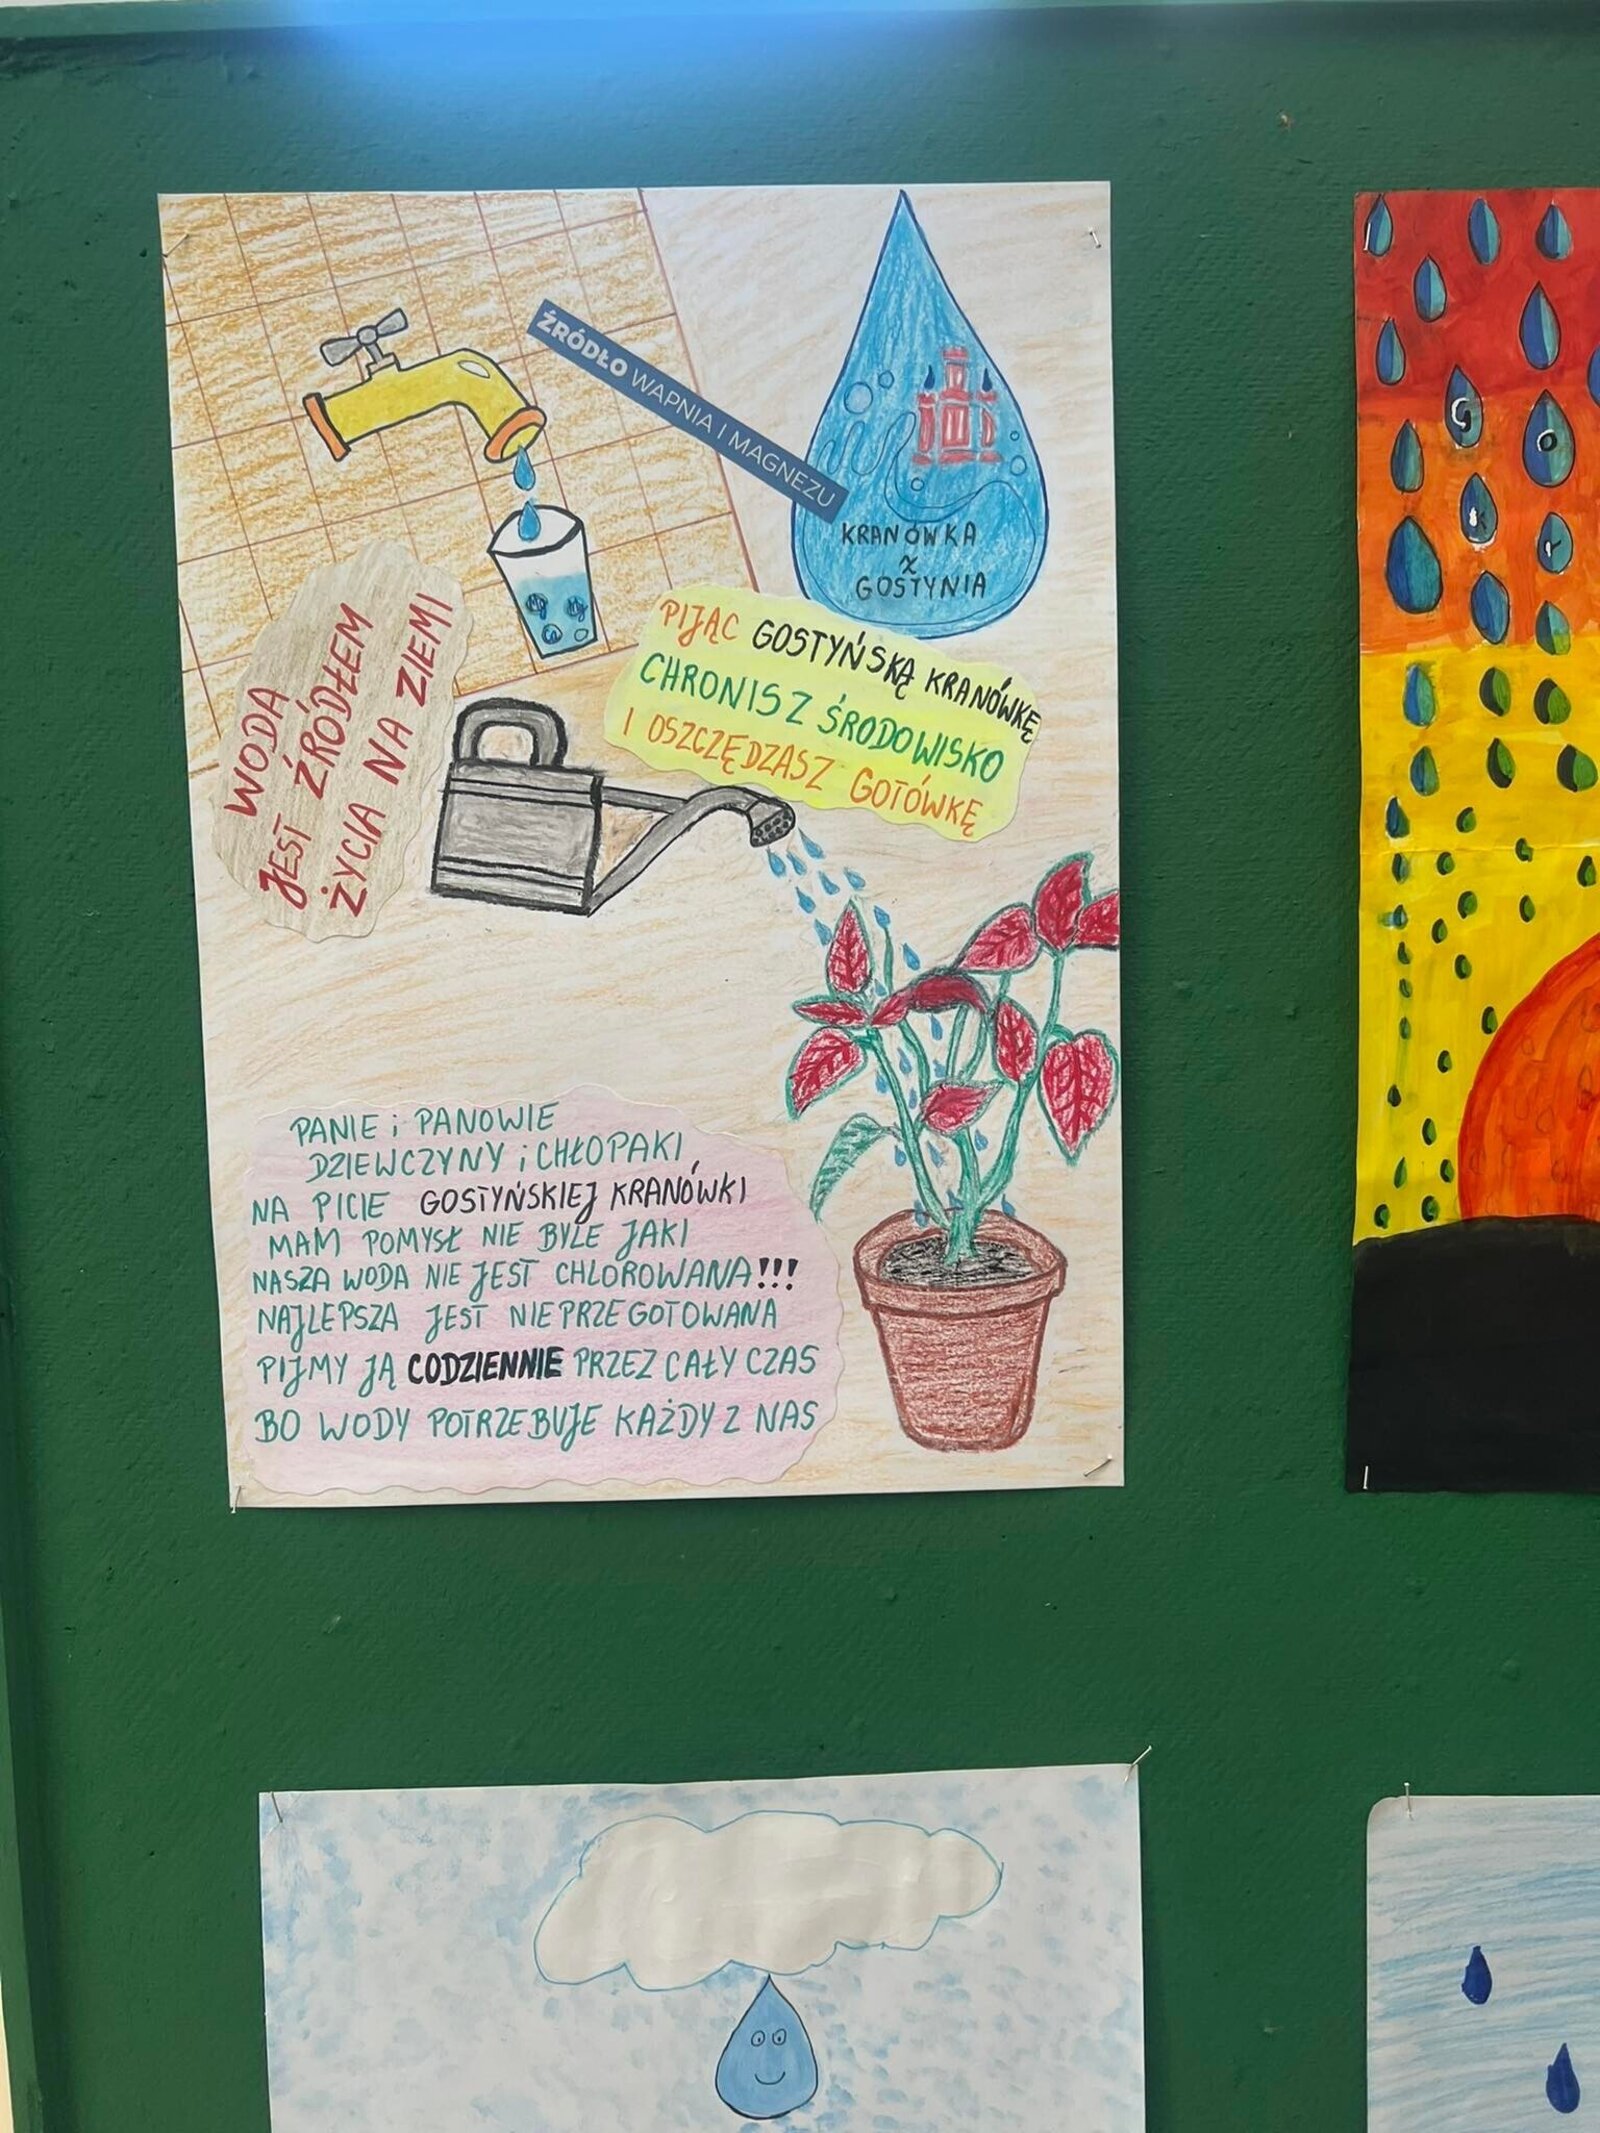 ŹRÓDŁO WAPNIA I MAGNEZU
KRANÓWKA
Z
GOSTYNIA
Mg
Mg
Ca
WODA
JEST ŹRÓDŁEM
ŻYCIA NA ZIEMI
PIJĄC GOSTYŃSKĄ KRANÓWKĘ
CHRONISZ ŚRODOWISKO
I OSZCZĘDZASZ GOTÓWKĘ
PANIE i PANOWIE
DZIEWCZYNY i CHŁOPAKI
NA PICIE GOSTYŃSKIEJ KRANÓWKI
MAM POMYSŁ NIE BYLE JAKI
NASZA WODA NIE JEST CHLOROWANA!!!
NAJLEPSZA JEST NIEPRZEGOTOWANA
PIJMY JĄ CODZIENNIE PRZEZ CAŁY CZAS
BO WODY POTRZEBUJE KAŻDY Z NAS
G O